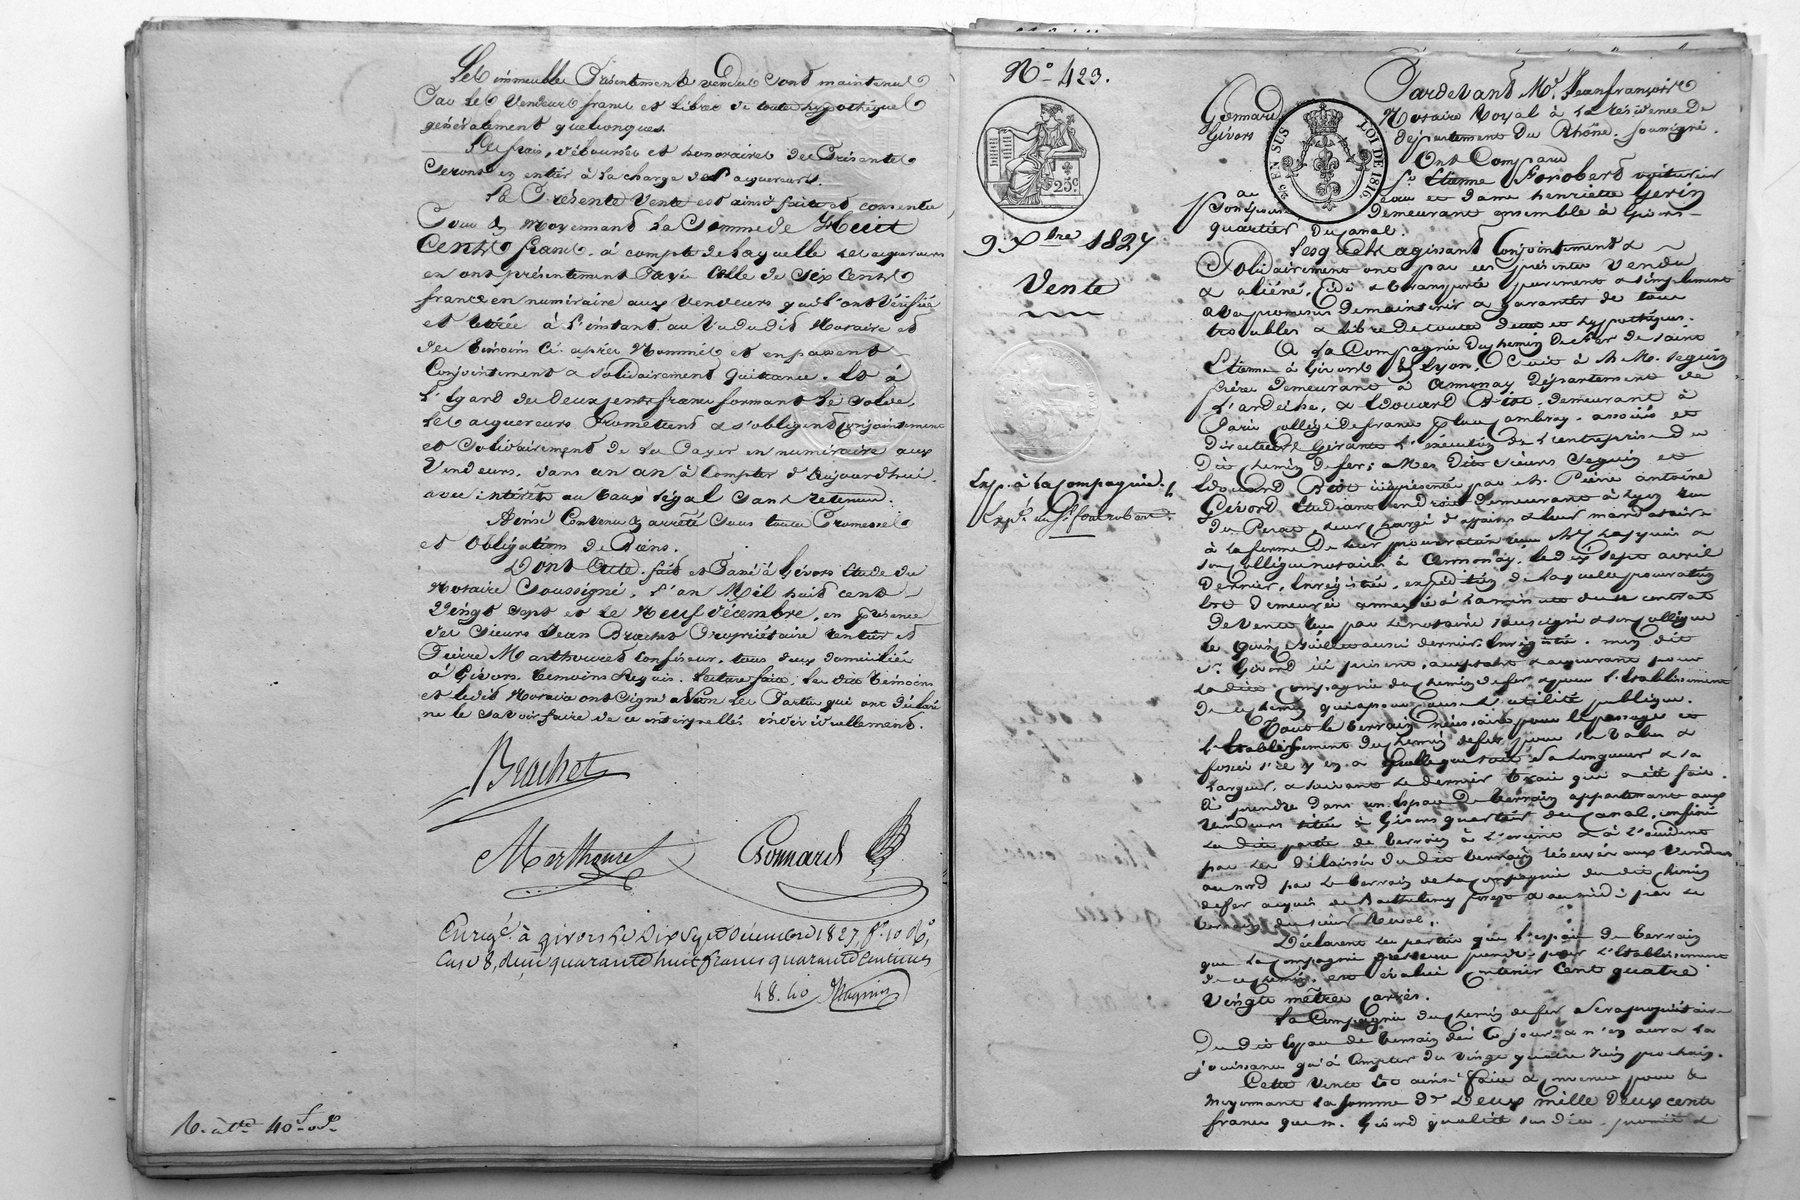 Les immeubles Présentement vendus sont maintenus
Par les Vendeurs francs et libres de toutes hypothèques
généralement quelconques.
Les frais, déboursés et honoraires des Présentes
seront en entier à la charge des acquereurs.
La Présente Vente est ainsi faite et consentie
Pour & moyennant la Somme de Huit
Cents francs. à compte de laquelle les acquereurs
en ont présentement Payé Celle de Six Cents
francs en numéraire aux vendeurs qui l'ont vérifiée
et retirée à l'instant au Vu du dit Notaire et
des témoins Ci-après Nommés et en passent
Conjointement & solidairement quittance. Et à
l'égard des deux cents francs formant le solde,
les acquereurs Promettent & s'obligent Conjointement
et Solidairement de les Payer en numéraire aux
Vendeurs, dans un an à Compter d'aujourd'hui
avec intérêts au taux légal sans retenue.
Ainsi Convenu & arrêté Sous toutes Promesses
et Obligations de Biens.
Dont Acte. fait et Passé à Givors Etude du
Notaire Soussigné, l'an Mil huit cent
Vingt sept et le Neuf décembre, en présence
des Sieurs Jean Brachet Propriétaire rentier et
Pierre Marthouret Confiseur, tous deux domiciliés
à Givors, témoins Requis. Lecture faite, les dits témoins
et ledit Notaire ont Signé Non les Parties qui ont déclaré
ne le savoir faire de ce interpellés individuellement.
Brachet
Marthouret
Enregé. à givors le dix sept décembre 1827, fo. 10 Ro,
Case 8, reçu quarante huit francs quarante centimes
48.40
N° 423.
25c
EN SUS
LOI DE 1816
9 Xbre 1827
Vente
Exp. à la Compagnie.
Pardevant Me. Jean françois
Notaire Royal à la résidence de
Givors département du Rhône, soussigné.
Ont Comparu
Sr. Etienne voiturier
par eau et dame henriette Gerin
Son épouse demeurant ensemble à Givors
quartier Du Canal.
Lesquels agissant Conjointement &
Solidairement ont par ces présentes vendu
& aliéné, Cédé & transporté purement & simplement
avec promesse de maintenir & garantir de tous
troubles & libre de toutes dettes et hypothèques.
A la Compagnie du chemin de fer de Saint
Etienne à Givors & Lyon, C'est à M. M. Seguin
frères demeurant à Annonay Département de
l'ardèche, & Edouard Biot, demeurant à
Paris collège de france place Cambray, associés et
Directeurs Gérants l'exécution de l'entreprise du
Dit Chemin de fer; & Mes Dits sieurs Seguin et
Edouard Biot ici représentés par M. Pierre antoine
Givord, étudiant en droit demeurant à Lyon rue
du Perat, leur chargé d'affaires & leur mandataire
à la forme de leur procuration reçue Me
son collègue notaires à Annonay, le dix sept avril
Dernier, enregistrée, expédition de laquelle procuration
est demeurée annexée à la minute d'un contrat
de vente reçu par le notaire soussigné & son collègue
le quinze juillet aussi dernier, enregistré. mon dit
Sr. Givord ici présent, acceptant & acquerant pour
la dite Compagnie du chemin de fer & pour l'établissement
de ce chemin qui a pour cause l'utilité publique.
Tout le terrain nécessaire pour le passage et
l'établissement du chemin de fer, pour les talus &
fossés s'il y en a quelle que soit sa longueur & sa
largeur, & suivant le dernier tracé qui a été fait.
à prendre dans un espace de terrain appartenant aux
vendeurs situé à Givors quartier du Canal, confiné
la dite partie de terrain à l'orient & à l'occident
par les délaissés du dit terrain réservés aux vendeurs
au nord par le terrain de la Compagnie du dit chemin
de fer acquis de Barthelemy & au midi par le
terrain du sieur
Déclarent les parties que l'espace de terrain
que la Compagnie prendre pour l'établissement
de ce chemin, est évalué contenir cent quatre
vingts mètres carrés.
La Compagnie du chemin de fer sera propriétaire
Du dit espace de terrain dès ce jour & n'en aura la
jouissance qu'à compter du vingt quatre juin prochain.
Cette vente est ainsi faite & convenue pour &
moyennant la somme de Deux mille deux cents
francs que M. Givord qualité sus dite, promet &